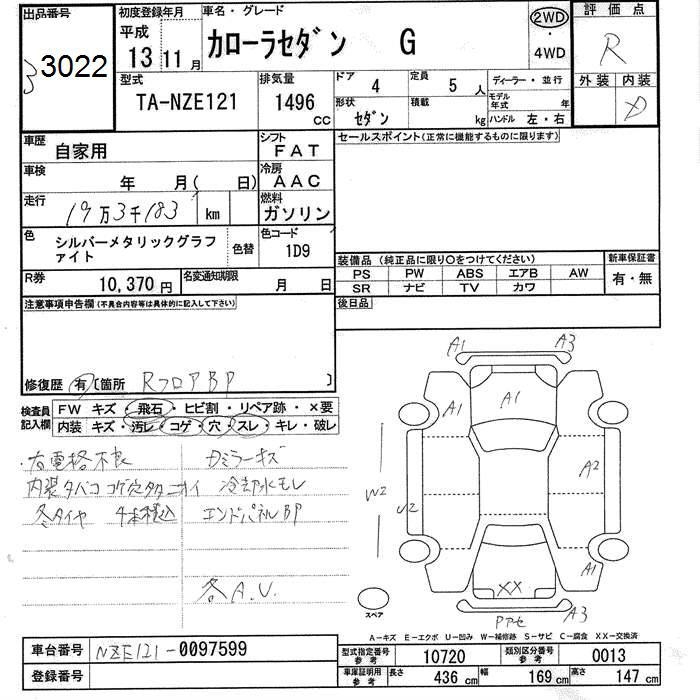 出品番号
3022
初度登録年月
平成
13 11月
車名・グレード
カローラセダン G
2WD
・
4WD
評価点
R
外装 内装
D
型式
TA-NZE121
排気量
1496
cc
ドア
4
定員
5 人
ディーラー・並行
形状
セダン
積載
kg
モデル
年式
年
ハンドル 左・右
車歴
自家用
シフト
FAT
車検
年 月( 日)
冷房
AAC
走行
19万3千183 km
燃料
ガソリン
色
シルバーメタリックグラファイト
色替
色コード
1D9
R券
10,370円
名変通知期限
月 日
セールスポイント(正常に機能するものに限ります)
装備品 (純正品に限り○をつけてください)
PS PW ABS エアB AW
SR ナビ TV カワ
新車保証書
有・無
後日品
注意事項申告欄(不具合内容等は具体的に記入して下さい)
修復歴 有 〔箇所 RフロアBP 〕
検査員
記入欄
FW キズ・飛石・ヒビ割・リペア跡・×要
内装 キズ・汚レ・コゲ・穴・スレ・キレ・破レ
右電格不良
内装タバコ コゲ穴
冬タイヤ 4本積込
ミラーキズ
冷却水モレ
エンドパネルBP
各A.U.
A1 A3
A1
A1
A2
W2
U2
A1
XX
スペア
Pアセ
A3
A-キズ E-エクボ U-凹み W-補修跡 S-サビ C-腐食 XX-交換済
車台番号 NZE121-0097599
登録番号
型式指定番号
参考
10720
類別区分番号
参考
0013
車庫証明用
参考
長さ 436 cm
幅 169 cm
高さ 147 cm